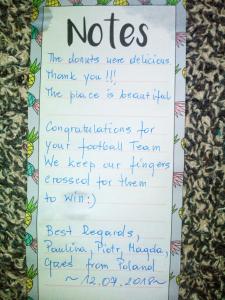 Notes
The donuts were delicious.
Thank you !!!
The place is beautiful
Congratulations for
your football Team
We keep our fingers
crossed for them
to win :)
Best Regards,
Paulina, Piotr, Magda,
from Poland
~ 12.07.2018 ~